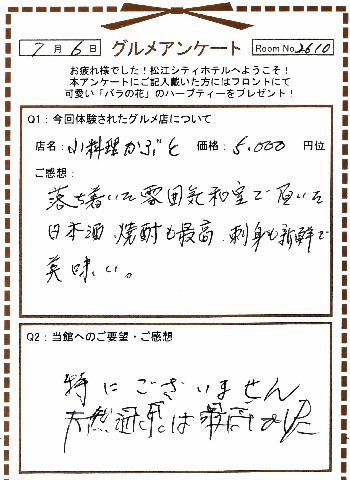 7月6日 グルメアンケート Room No.2610
お疲れ様でした！松江シティホテルへようこそ！
本アンケートにご記入戴いた方にはフロントにて
可愛い「バラの花」のハーブティーをプレゼント！
Q1：今回体験されたグルメ店について
店名：小料理かぶと 価格：5,000 円位
ご感想：
落ち着いた雰囲気和室で頂いた
日本酒、焼酎も最高、刺身も新鮮で
美味しい。
Q2：当館へのご要望・ご感想
特にございません
天然温泉は最高でした